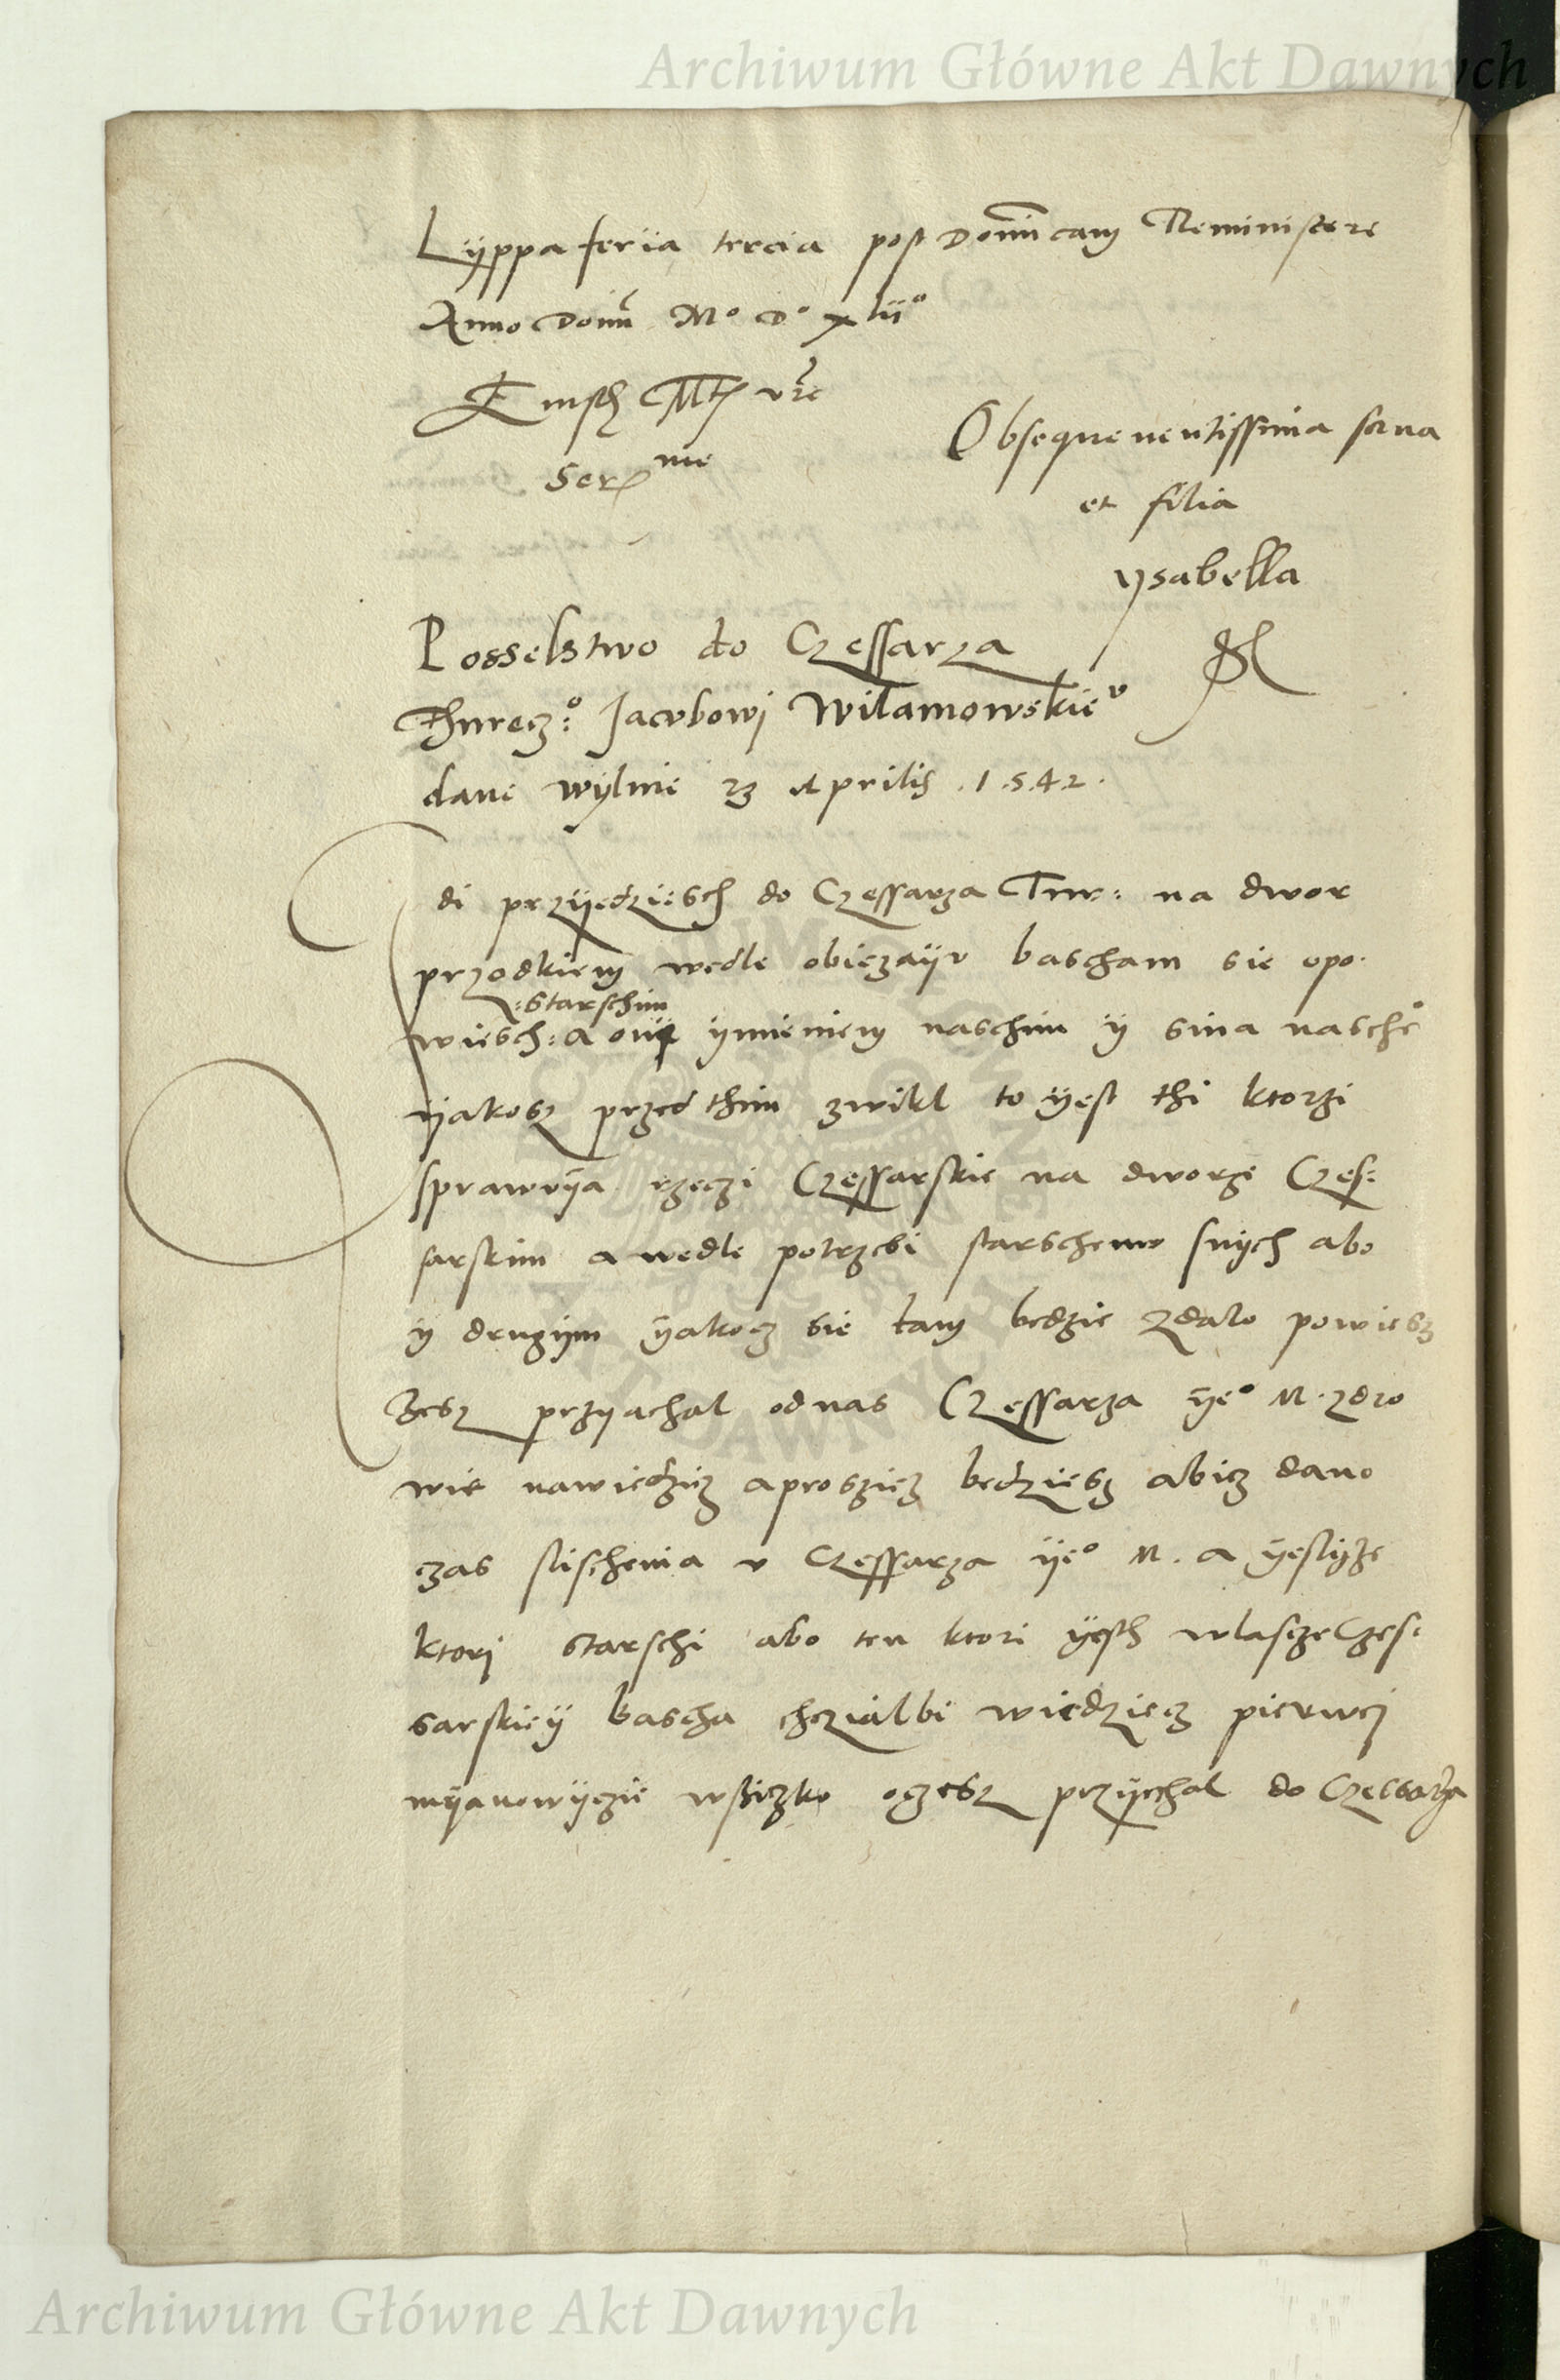 Archiwum Główne Akt Dawnych
Lÿppa feria tercia post Dominicam Reminiscere
Anno Domi M° D° xlii°
Eiusdem Mtis vre
Sermme
Obsequeventissima serva
et filia
ysabella
Posselstwo do Czessarza
Thurecz:° Jacobowj Wilamowskie°
dane wÿlnie 23 Aprilis .1.5.4.2.
Gdi przÿedziesch do Czessarza Tur: na dwor
przodkiem wedle obiczaÿv bascham sie opo-
:starschim
wiesch: a onÿ ÿmieniem naschim ÿ sina nasche°
ÿakosz przed thim zwikl to ÿest thi ktorzi
sprawuÿa rzeczi Czessarskie na dworze Czes:
sarskim a wedle potrzebi starschemv snÿch abo
ÿ drugÿm ÿakosz sie tam bedzie zdalo powiesz
zesz przÿachal od nas Czessarza ÿe° M. zdro
wie nawiedzicz a prosziecz bedziesz abicz dano
czas slischenia v Czessarza ÿe° M. a ÿeslÿze
ktorj starschi abo ten ktori ÿesth wlascze Czes:
sarskieÿ bascha chczialbi wiedziecz pierwej
mÿanowÿczie wssiczko oczesz przÿechal do Czessarza
Archiwum Główne Akt Dawnych